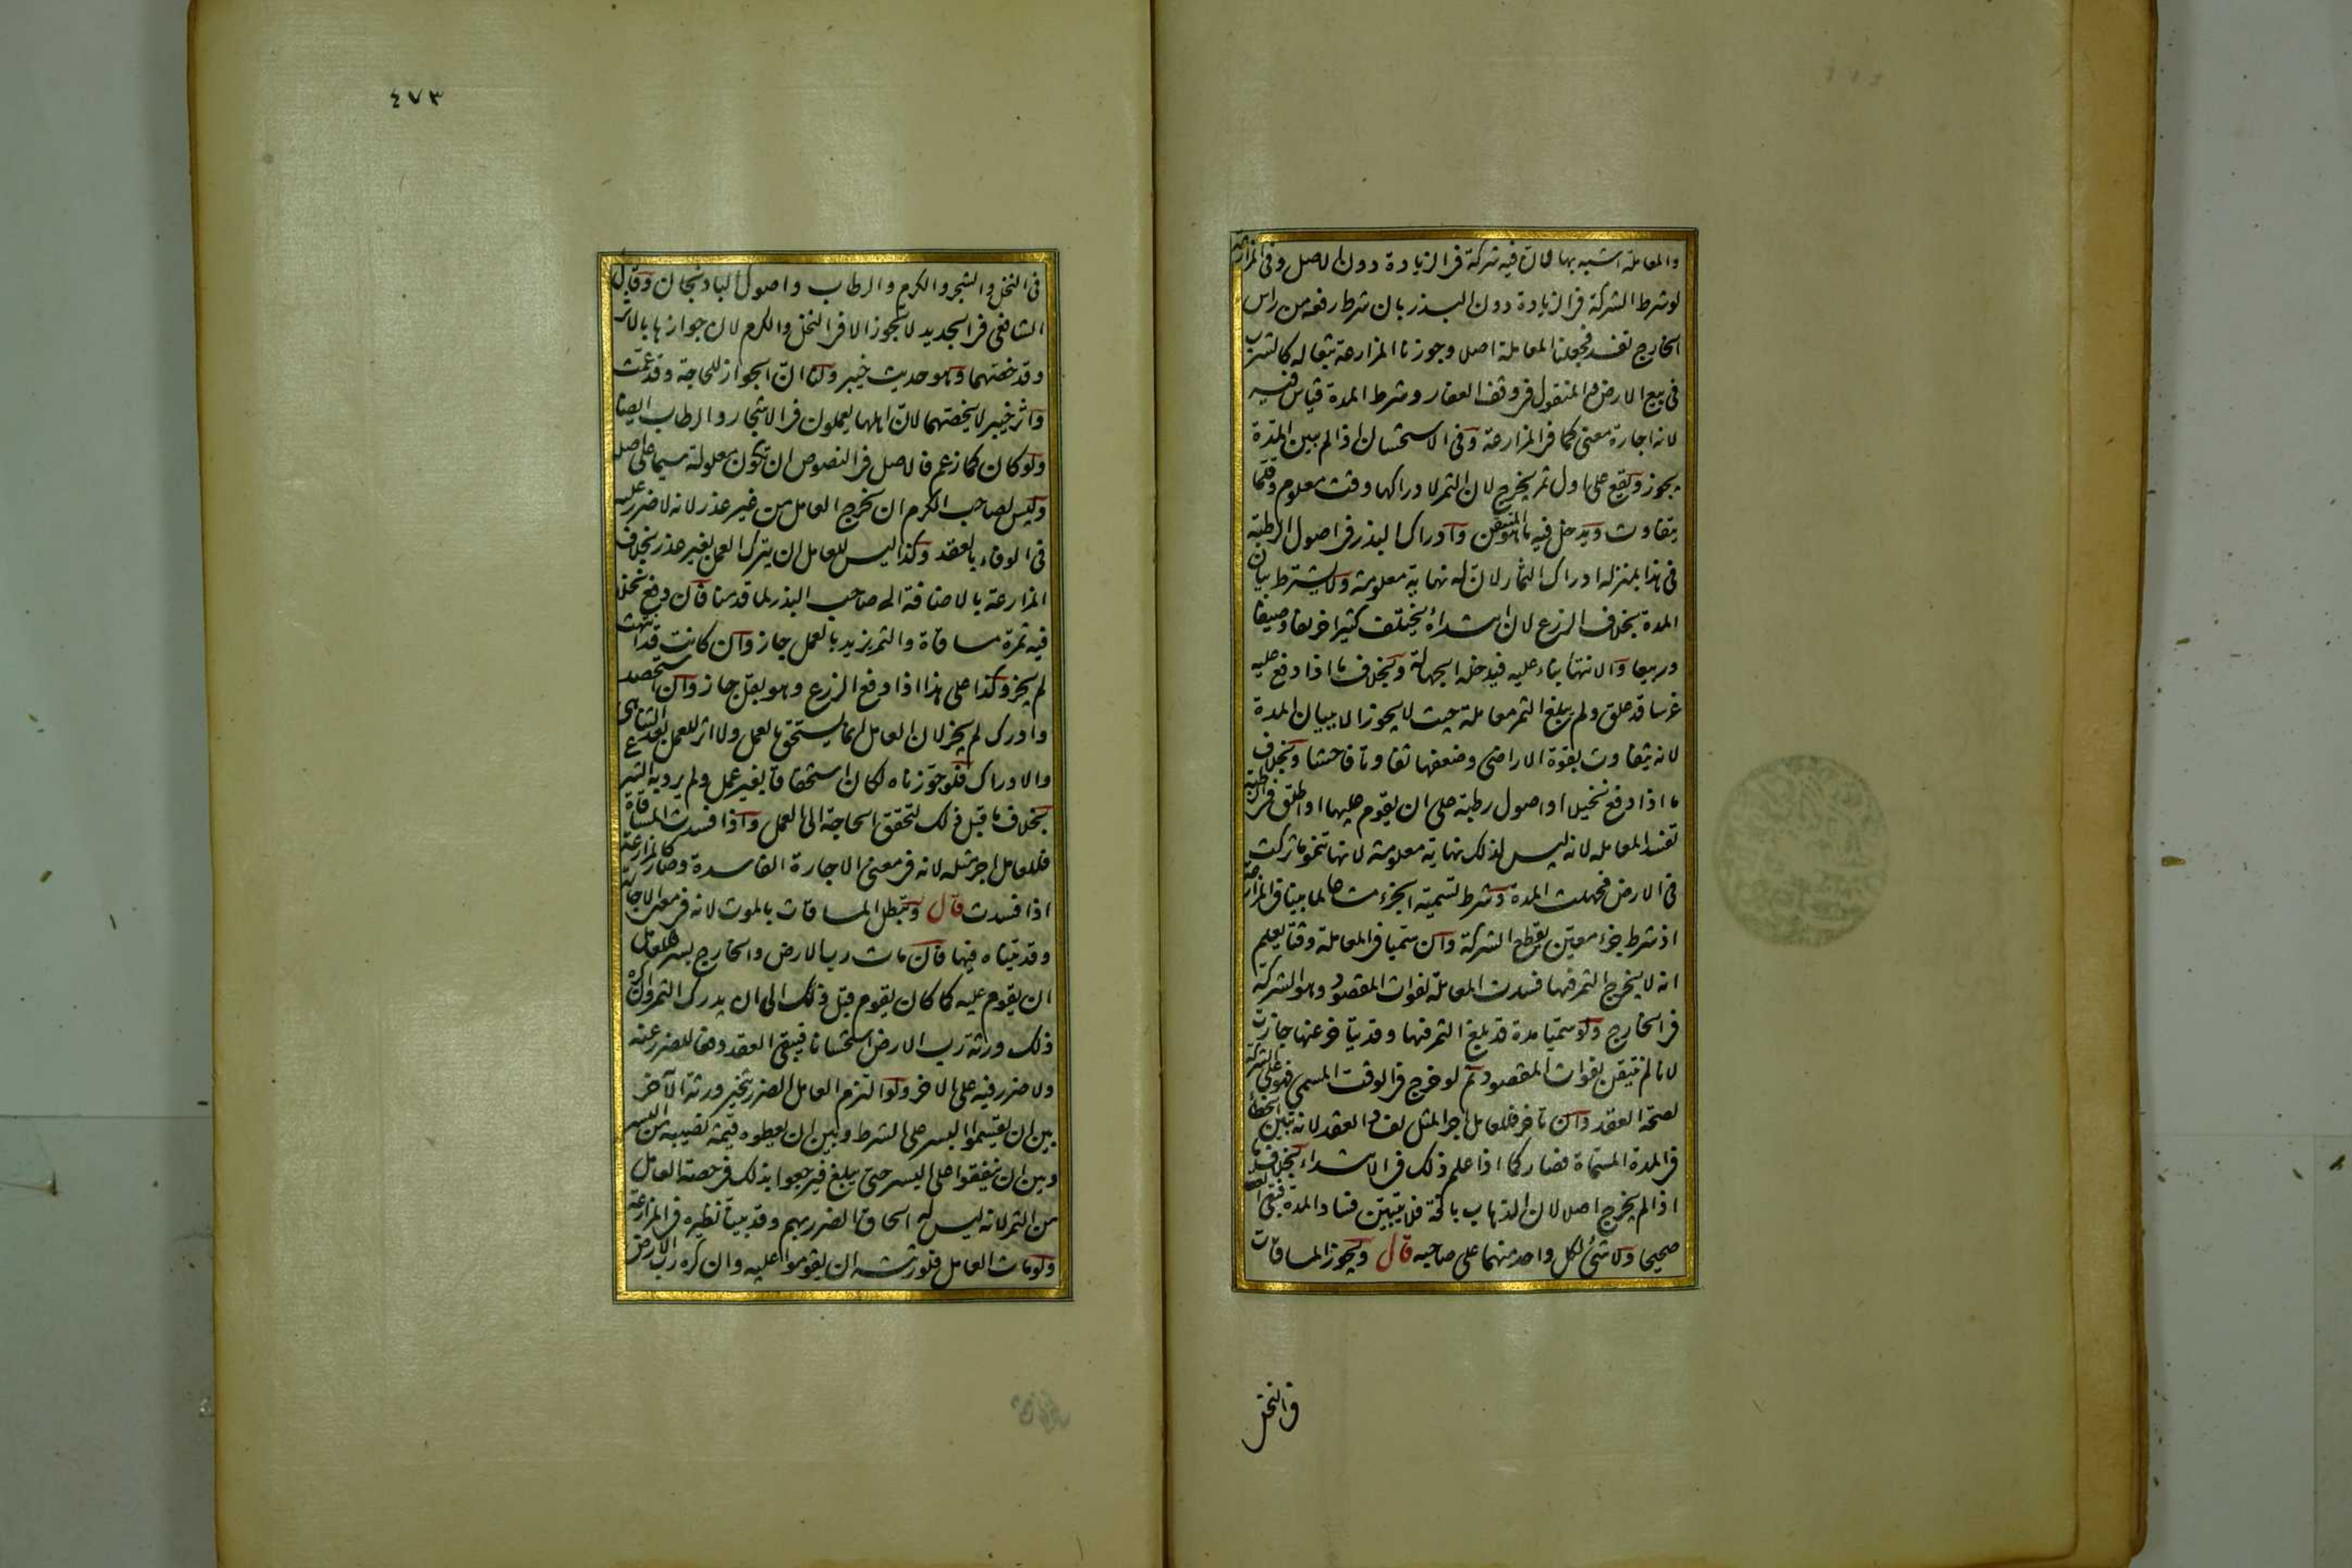 والمعاملة اشبه بها لان فيه شركة فى الزيادة دون الاصل وفى المزارعة
لو شرط الشركة فى الزيادة دون البذر بان شرط رفعه من راس
الخارج تفسد فجعلنا المعاملة اصلا وجوزنا المزارعة تبعا له كالشرب
فى بيع الارض والمنقول فى وقف العقار وشرط المدة قياس فيه
لانه اجارة معنى كما فى المزارعة وفى الاستحسان اذا لم يبين المدة
يجوز ويقع على اول ثمر يخرج لان الثمر لادراكها وقت معلوم وقلما
يتفاوت ويدخل فيه ما هو المتيقن وادراك البذر فى اصول الرطبة
فى هذا بمنزله ادراك الثمار لان له نهاية معلومة ولا يشترط بيان
المدة بخلاف الزرع لان ابتداؤه يختلف كثيرا خريفا وصيفا
وربيعا والانتها بناء عليه فيدخله الجهالة وبخلاف ما اذا دفع اليه
غرسا قد علق ولم يبلغ الثمر معاملة حيث لا يجوز الا ببيان المدة
لانه يتفاوت بقوة الاراضى وضعفها تفاوتا فاحشا وبخلاف
ما اذا دفع نخيلا او اصول رطبة على ان يقوم عليها او اطلق فى الرطبة
تفسد المعامله لانه ليس لذلك نهاية معلومة لانها تنمو ما تركت
فى الارض فجهلت المدة وشرط تسمية الجزء مشاعا لما بينا فى المزارعة
اذ شرط جزء معين يقطع الشركة وان سميا فى المعاملة وقتا يعلم
انه لا يخرج الثمر فيها فسدت المعاملة لفوات المقصود وهو الشركة
فى الخارج ولو سميا مدة قد يبلغ الثمر فيها وقد يتاخر عنها جازت
لانا لم نتيقن بفوات المقصود ثم لو خرج فى الوقت المسمى فهو على الشركة
لصحة العقد وان تاخر فللعامل اجر المثل لفساد العقد لانه تبين الخطأ
فى المدة المسماة فصار كما اذا علم ذلك فى الابتداء بخلاف ما
اذا لم يخرج اصلا لان الذهاب بافة فلا يتبين فساد المدة فبقى العقد
صحيحا ولا شئ لكل واحد منهما على صاحبه قال ويجوز المساقات
فى النخل
٤٧٣
فى النخل والشجر والكرم والرطاب واصول الباذنجان وقال
الشافعى فى الجديد لا تجوز الا فى النخل والكرم لان جوازها بالاثر
وقد خصهما وهو حديث خيبر ولنا ان الجواز للحاجة وقد عمت
واثر خيبر لا يخصهما لان اهلها يعملون فى الاشجار والرطاب ايضا
ولو كان كما زعم فالاصل فى النصوص ان تكون معلولة سيما على اصله
وليس لصاحب الكرم ان يخرج العامل من غير عذر لانه لا ضرر عليه
فى الوفاء بالعقد وكذا ليس للعامل ان يترك العمل بغير عذر بخلاف
المزارعة بالاضافة الى صاحب البذر لما قدمنا فان دفع نخلا
فيه ثمرة مساقاة والثمر يزيد بالعمل جاز وان كانت قد انتهت
لم يجز وكذا على هذا اذا دفع الزرع وهو بقل جاز وان استحصد
وادرك لم يجز لان العامل انما يستحق بالعمل ولا اثر للعمل بعد التناهى
والادراك فلو جوزناه لكان استحقاقا بغير عمل ولم يرد به الشرع
بخلاف ما قبل ذلك لتحقق الحاجة الى العمل واذا فسدت المساقاة
فللعامل اجر مثله لانه فى معنى الاجارة الفاسدة وصار كالمزارعة
اذا فسدت قال وتبطل المساقات بالموت لانه فى معنى الاجارة
وقد بيناه فيها فان مات رب الارض والخارج بسر فللعامل
ان يقوم عليه كما كان يقوم قبل ذلك الى ان يدرك الثمر وان كره
ذلك ورثة رب الارض استحسانا فيبقى العقد دفعا للضرر عنه
ولا ضرر فيه على الاخر ولو التزم العامل الضرر يتخير ورثة الآخر
بين ان يقتسموا البسر على الشرط وبين ان يعطوه قيمة نصيبه من البسر
وبين ان ينفقوا على البسر حتى يبلغ فيرجعوا بذلك فى حصة العامل
من الثمر لانه ليس له الحاق الضرر بهم وقد بينا نظيره فى المزارعة
ولو مات العامل فلورثته ان يقوموا عليه وان كره رب الارض